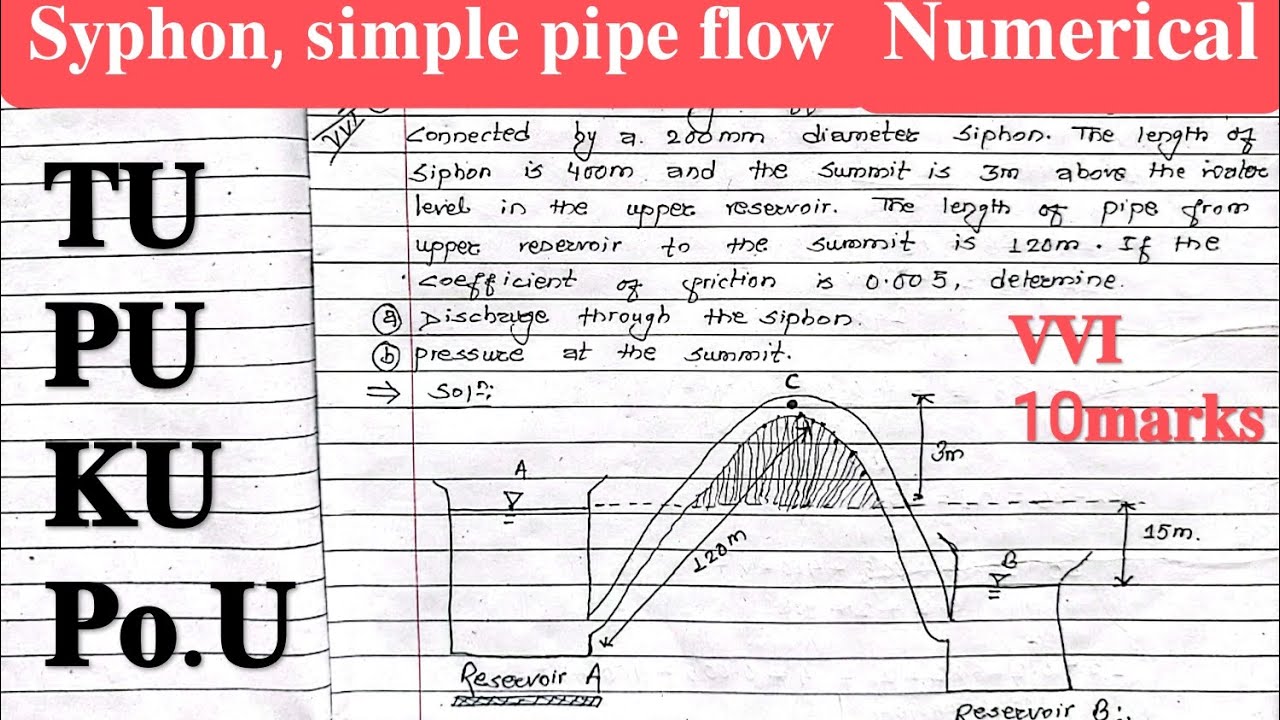 Syphon, simple pipe flow Numerical
VVI
connected by a 200mm diameter siphon. The length of
siphon is 400m and the summit is 3m above the water
level in the upper reservoir. The length of pipe from
upper reservoir to the summit is 120m. If the
coefficient of friction is 0.005, determine.
(a) Discharge through the siphon.
(b) pressure at the summit.
⇒ Solⁿ:
TU
PU
KU
Po.U
VVI
10marks
C
3m
A
120m
15m.
B
Reservoir A
Reservoir B: